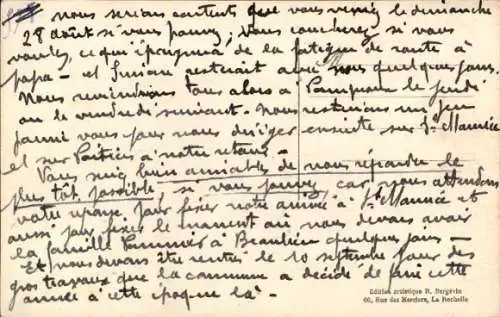 nous serions contents que vous veniez le dimanche
28 août si vous pouvez, vous coucherez si vous
voulez, ce qui épargnera de la fatigue de route à
papa - et resterait avec nous quelques jours.
Nous reviendrions tous alors à le jeudi
ou le vendredi suivant. Nous resterions un peu
parmi vous pour nous diriger ensuite sur St Maurice
et sur Poitiers à notre retour.
Vous seriez bien aimables de nous répondre le
plus tôt possible, si vous pouvez, car nous attendons
votre réponse pour fixer notre arrivée à St Maurice et
aussi pour fixer le moment où nous devons avoir
la famille à Beaulieu quelques jours -
Et nous devons être rentrés le 10 septembre pour des
gros travaux que la commune a décidé de faire cette
année à cette époque là -
Edition artistique R. Bergevin
60, Rue des Merciers, La Rochelle